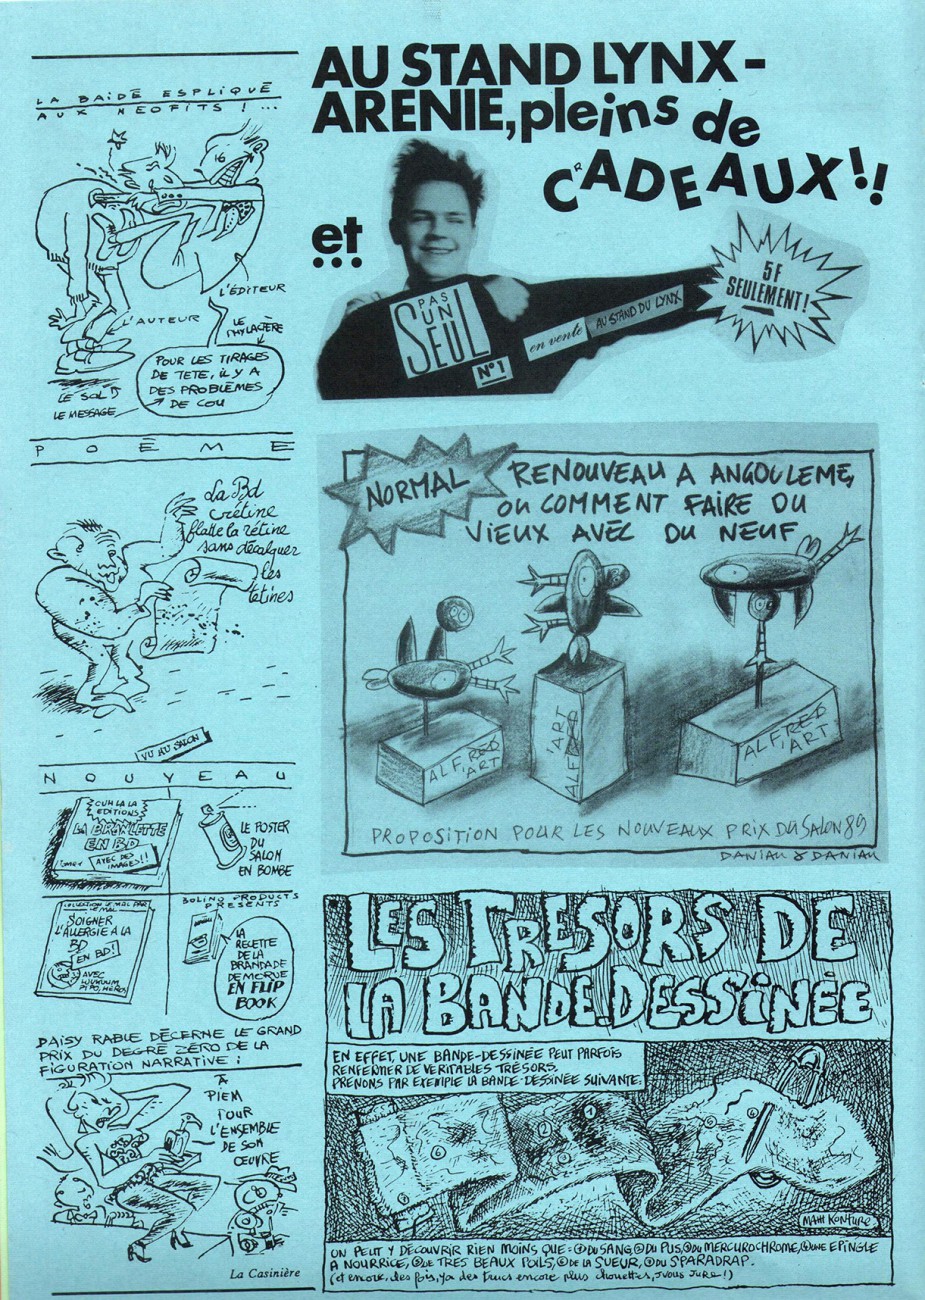 LA BAIDÉ ESPLIQUÉ
AUX NEOFITS ! ...
16
L'ÉDITEUR
L'AUTEUR
LE
PHYLACTÈRE
POUR LES TIRAGES
DE TETE, IL Y A
DES PROBLÈMES
DE COU
LE SOL
LE MESSAGE
POÈME
La Bd
crétine
flatte la rétine
sans décalquer
les
tétines
VU AU SALON
NOUVEAU
CUH LA LA
EDITIONS
LA BRANLETTE
EN BD
AVEC DES
IMAGES!!
LE POSTER
DU
SALON
EN BOMBE
COLLECTION LE MAL PAR
LE MAL
SOIGNER
L'ALLERGIE A LA
BD
EN BD!
AVEC
PIPO, HEROS
BOLINO PRODUCTS
PRESENTS
LA
RECETTE
DE LA
BRANDADE
DE MORUE
EN FLIP
BOOK
DAISY RABLE DÉCERNE LE GRAND
PRIX DU DEGRÉ ZÉRO DE LA
FIGURATION NARRATIVE :
À
PIEM
POUR
L'ENSEMBLE
DE SON
ŒUVRE
La Casinière
AU STAND LYNX-
ARENIE, pleins de
CrADEAUX!!
et...
PAS
UN
SEUL
N°1
en vente
AU STAND DU LYNX
5F
SEULEMENT!
NORMAL
RENOUVEAU A ANGOULEME,
OU COMMENT FAIRE DU
VIEUX AVEC DU NEUF
ALFRED
ART
L'ART
ALFRED
ALFRED
ART
PROPOSITION POUR LES NOUVEAUX PRIX DU SALON 89
DANIAU & DANIAU
LES TRESORS DE
LA BANDE.DESSINÉE
EN EFFET, UNE BANDE-DESSINÉE PEUT PARFOIS
RENFERMER DE VERITABLES TRÉSORS.
PRENONS PAR EXEMPLE LA BANDE-DESSINÉE SUIVANTE:
MATT KONTURE
ON PEUT Y DÉCOUVRIR RIEN MOINS QUE: ①DU SANG, ②DU PUS, ③DU MERCUROCHROME, ④UNE EPINGLE
A NOURRICE, ⑤DE TRES BEAUX POILS, ⑥DE LA SUEUR, ⑦DU SPARADRAP.
(et encore, des fois, ya des trucs encore plus chouettes, j'vous jure!)